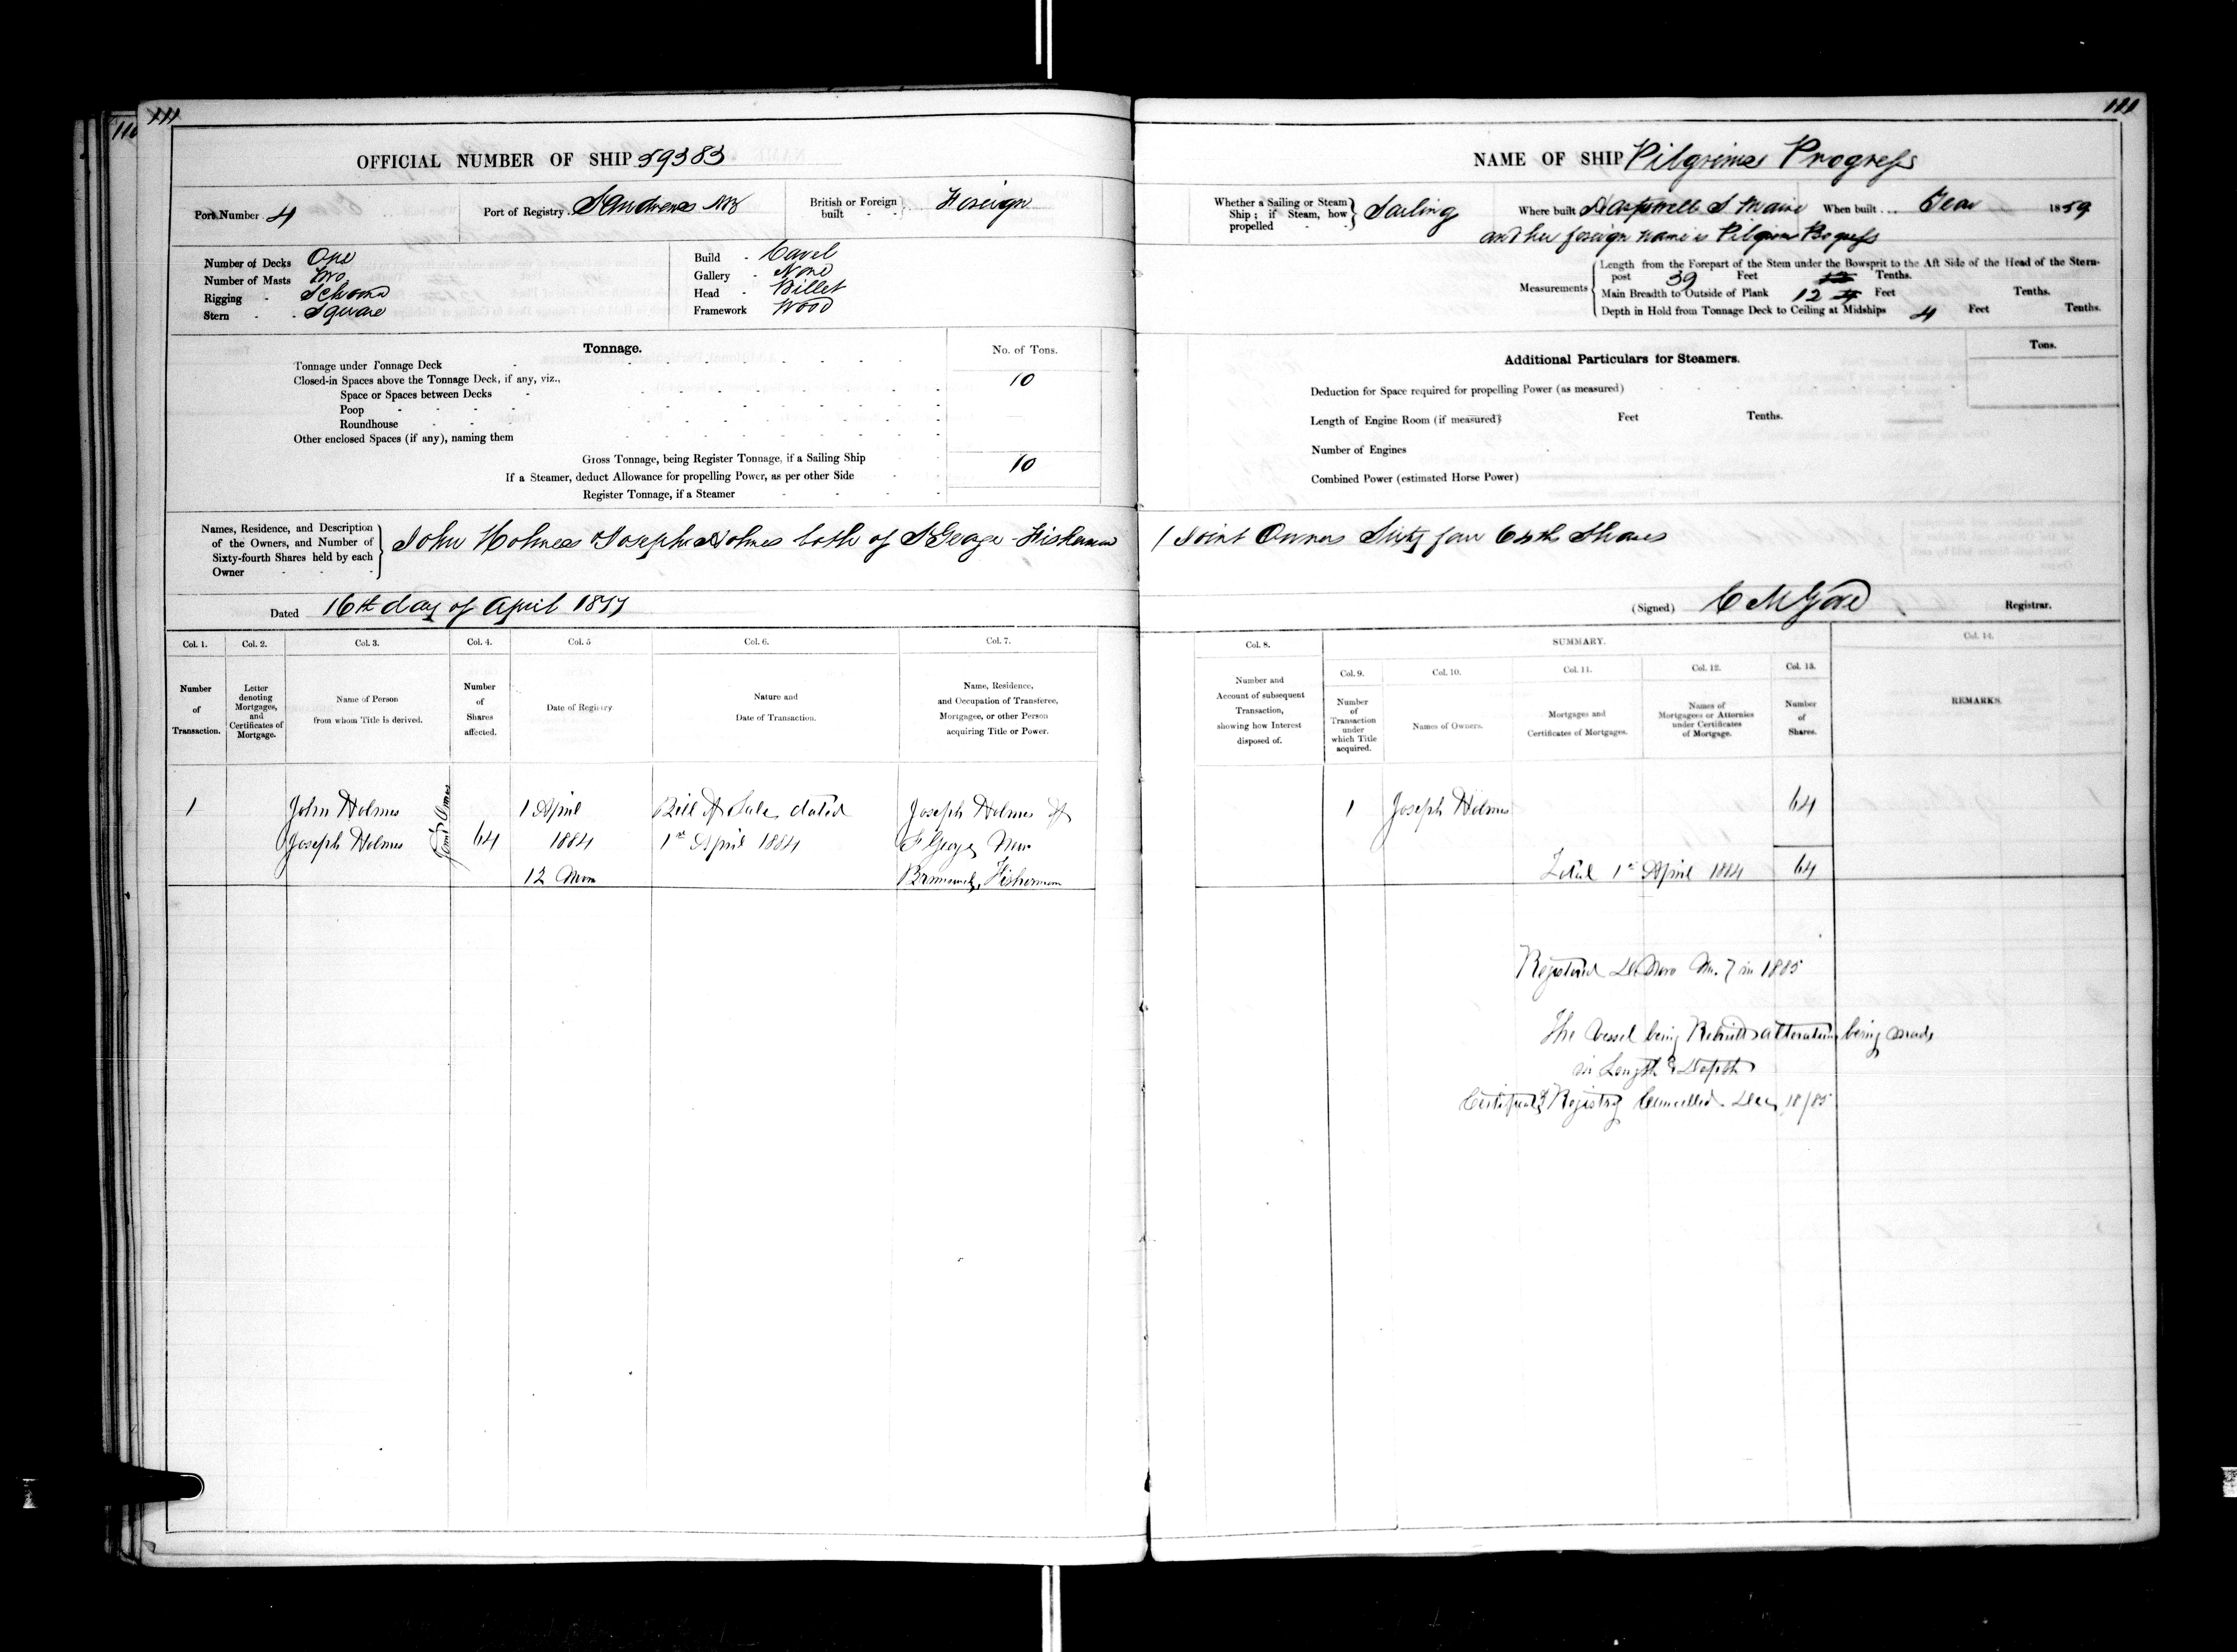 111
110
OFFICIAL NUMBER OF SHIP 59383
Port Number 4
Port of Registry St Andrews NB
British or Foreign built - - Foreign
Number of Decks One
Number of Masts Two
Rigging - Schooner
Stern - - Square
Build - Carvel
Gallery - None
Head - Billet
Framework Wood
Tonnage.
No. of Tons.
Tonnage under Tonnage Deck
Closed-in Spaces above the Tonnage Deck, if any, viz., 10
Space or Spaces between Decks
Poop
Roundhouse
Other enclosed Spaces (if any), naming them
Gross Tonnage, being Register Tonnage, if a Sailing Ship 10
If a Steamer, deduct Allowance for propelling Power, as per other Side
Register Tonnage, if a Steamer
Names, Residence, and Description of the Owners, and Number of Sixty-fourth Shares held by each Owner
John Holmes & Joseph Holmes both of St George Fishermen
Dated 16th day of April 1877
Col. 1. Col. 2. Col. 3. Col. 4. Col. 5 Col. 6. Col. 7.
Number of Transaction.
Letter denoting Mortgages, and Certificates of Mortgage.
Name of Person from whom Title is derived.
Number of Shares affected.
Date of Registry.
Nature and Date of Transaction.
Name, Residence, and Occupation of Transferee, Mortgagee, or other Person acquiring Title or Power.
1 John Holmes 1 April Bill of Sale dated Joseph Holmes of
Joseph Holmes Joint Owners 64 1884 1st April 1884 St George New
12 Noon Brunswick, Fisherman
111
NAME OF SHIP Pilgrims Progress
Whether a Sailing or Steam Ship; if Steam, how propelled - - Sailing
Where built Harpswell S Maine
When built ... Year 1859
and her foreign name is Pilgrims Progress
Measurements
Length from the Forepart of the Stem under the Bowsprit to the Aft Side of the Head of the Stern-
post 39 Feet Tenths.
Main Breadth to Outside of Plank 12 Feet Tenths.
Depth in Hold from Tonnage Deck to Ceiling at Midships 4 Feet Tenths.
Additional Particulars for Steamers.
Tons.
Deduction for Space required for propelling Power (as measured)
Length of Engine Room (if measured) Feet Tenths.
Number of Engines
Combined Power (estimated Horse Power)
Joint Owners Sixty four 64th Shares
(Signed) C M Gove Registrar.
Col. 8. SUMMARY. Col. 14.
Col. 9. Col. 10. Col. 11. Col. 12. Col. 13.
Number and Account of subsequent Transaction, showing how Interest disposed of.
Number of Transaction under which Title acquired.
Names of Owners.
Mortgages and Certificates of Mortgages.
Names of Mortgagees or Attornies under Certificates of Mortgage.
Number of Shares.
REMARKS.
1 Joseph Holmes 64
Total 1st April 1884 64
Registered De Novo No. 7 in 1885
The vessel being Rebuilt & alterations being made
in Length & Depth
Certificate of Registry Cancelled Dec 18/85